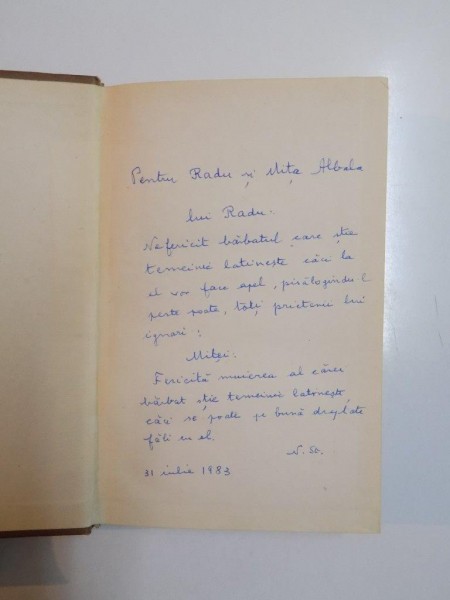 Pentru Radu și Mița Albala
lui Radu:
Nefericit bărbatul care știe
temeinic latinește căci la
el vor face apel, pisălogindu-l
peste poate, toți prietenii lui
ignari;
Miței:
Fericită muierea al cărei
bărbat știe temeinic latinește,
căci se poate pe bună dreptate
făli cu el.
N. St.
31 iulie 1983